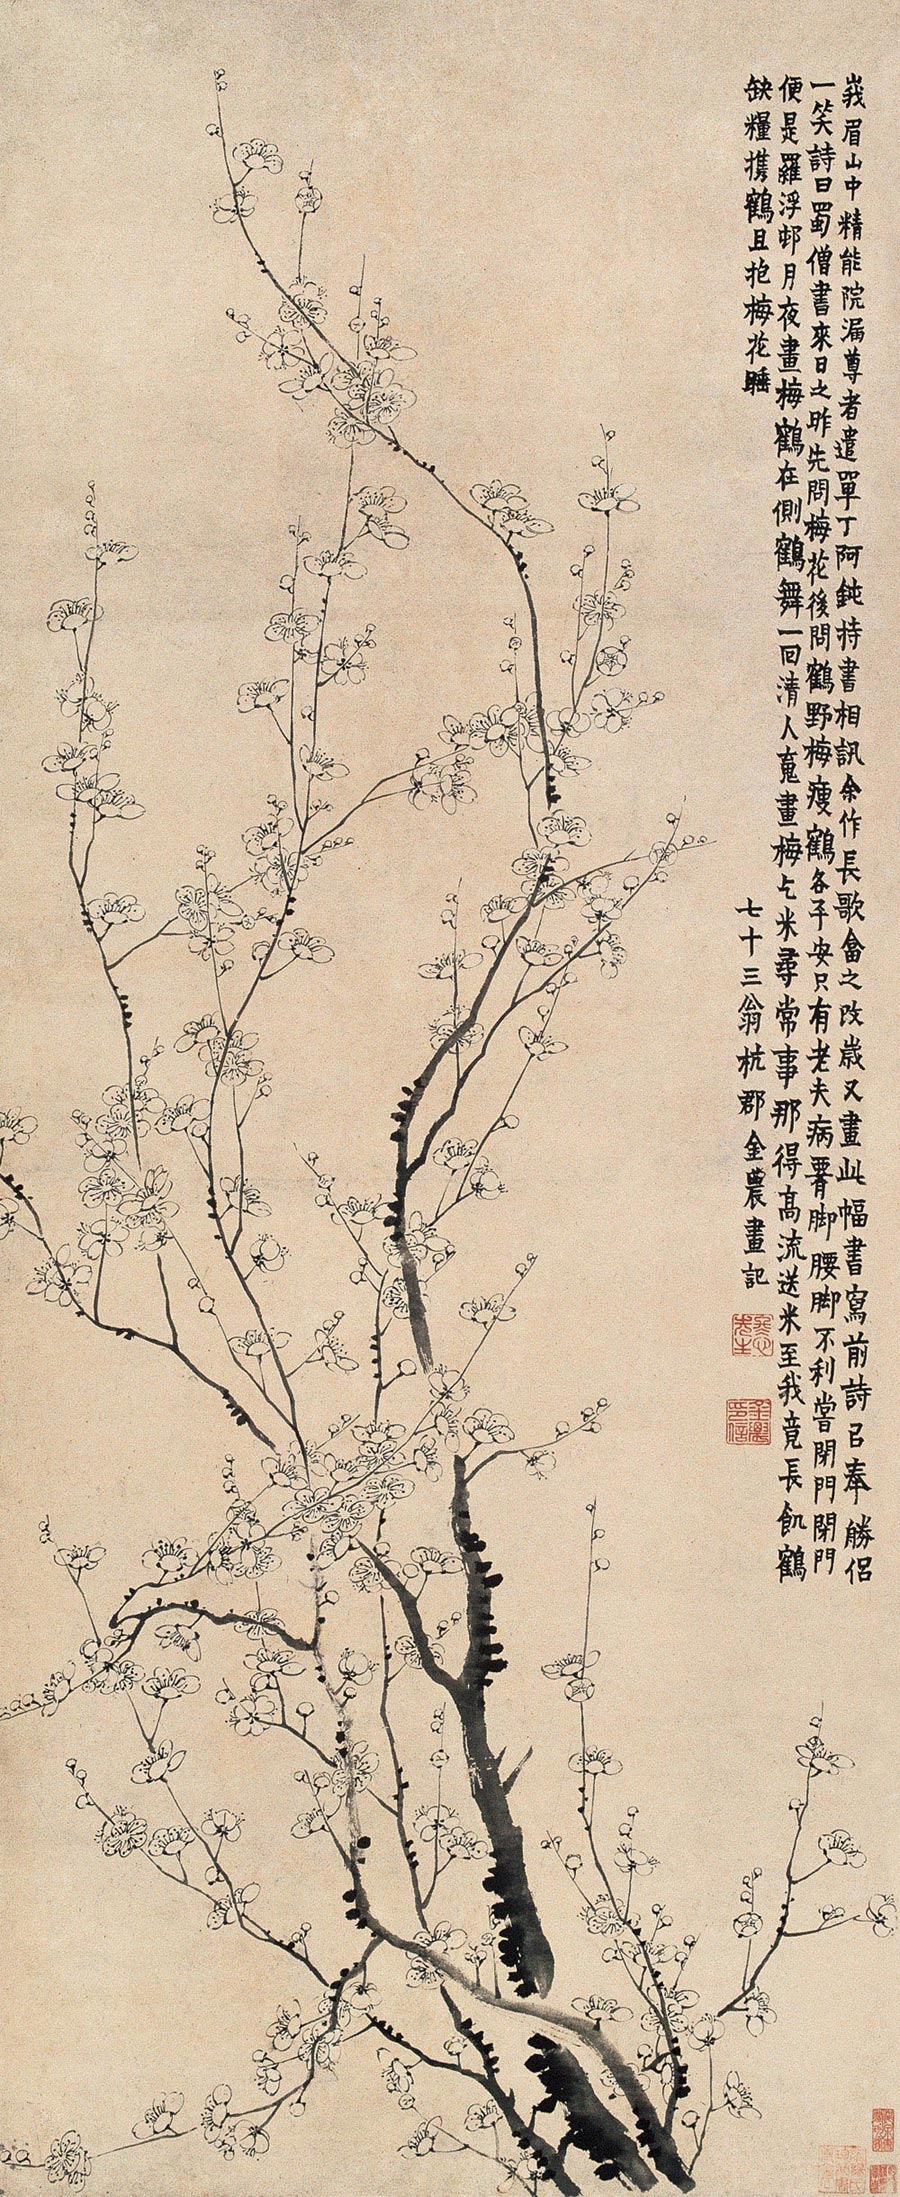 峩眉山中精能院漏尊者遣單丁阿鈍持書相訊余作長歌畣之改歲又畫此幅書寫前詩已奉勝侶
一笑詩曰蜀僧書來日之昨先問梅花後問鶴野梅瘦鶴各平安只有老夫病腰脚腰脚不利嘗閉門閉門
便是羅浮邨月夜畫梅鶴在側鶴舞一回清人䰟畫梅乞米尋常事那得高流送米至我竟長飢鶴
缺糧携鶴且抱梅花睡
七十三翁杭郡金農畫記